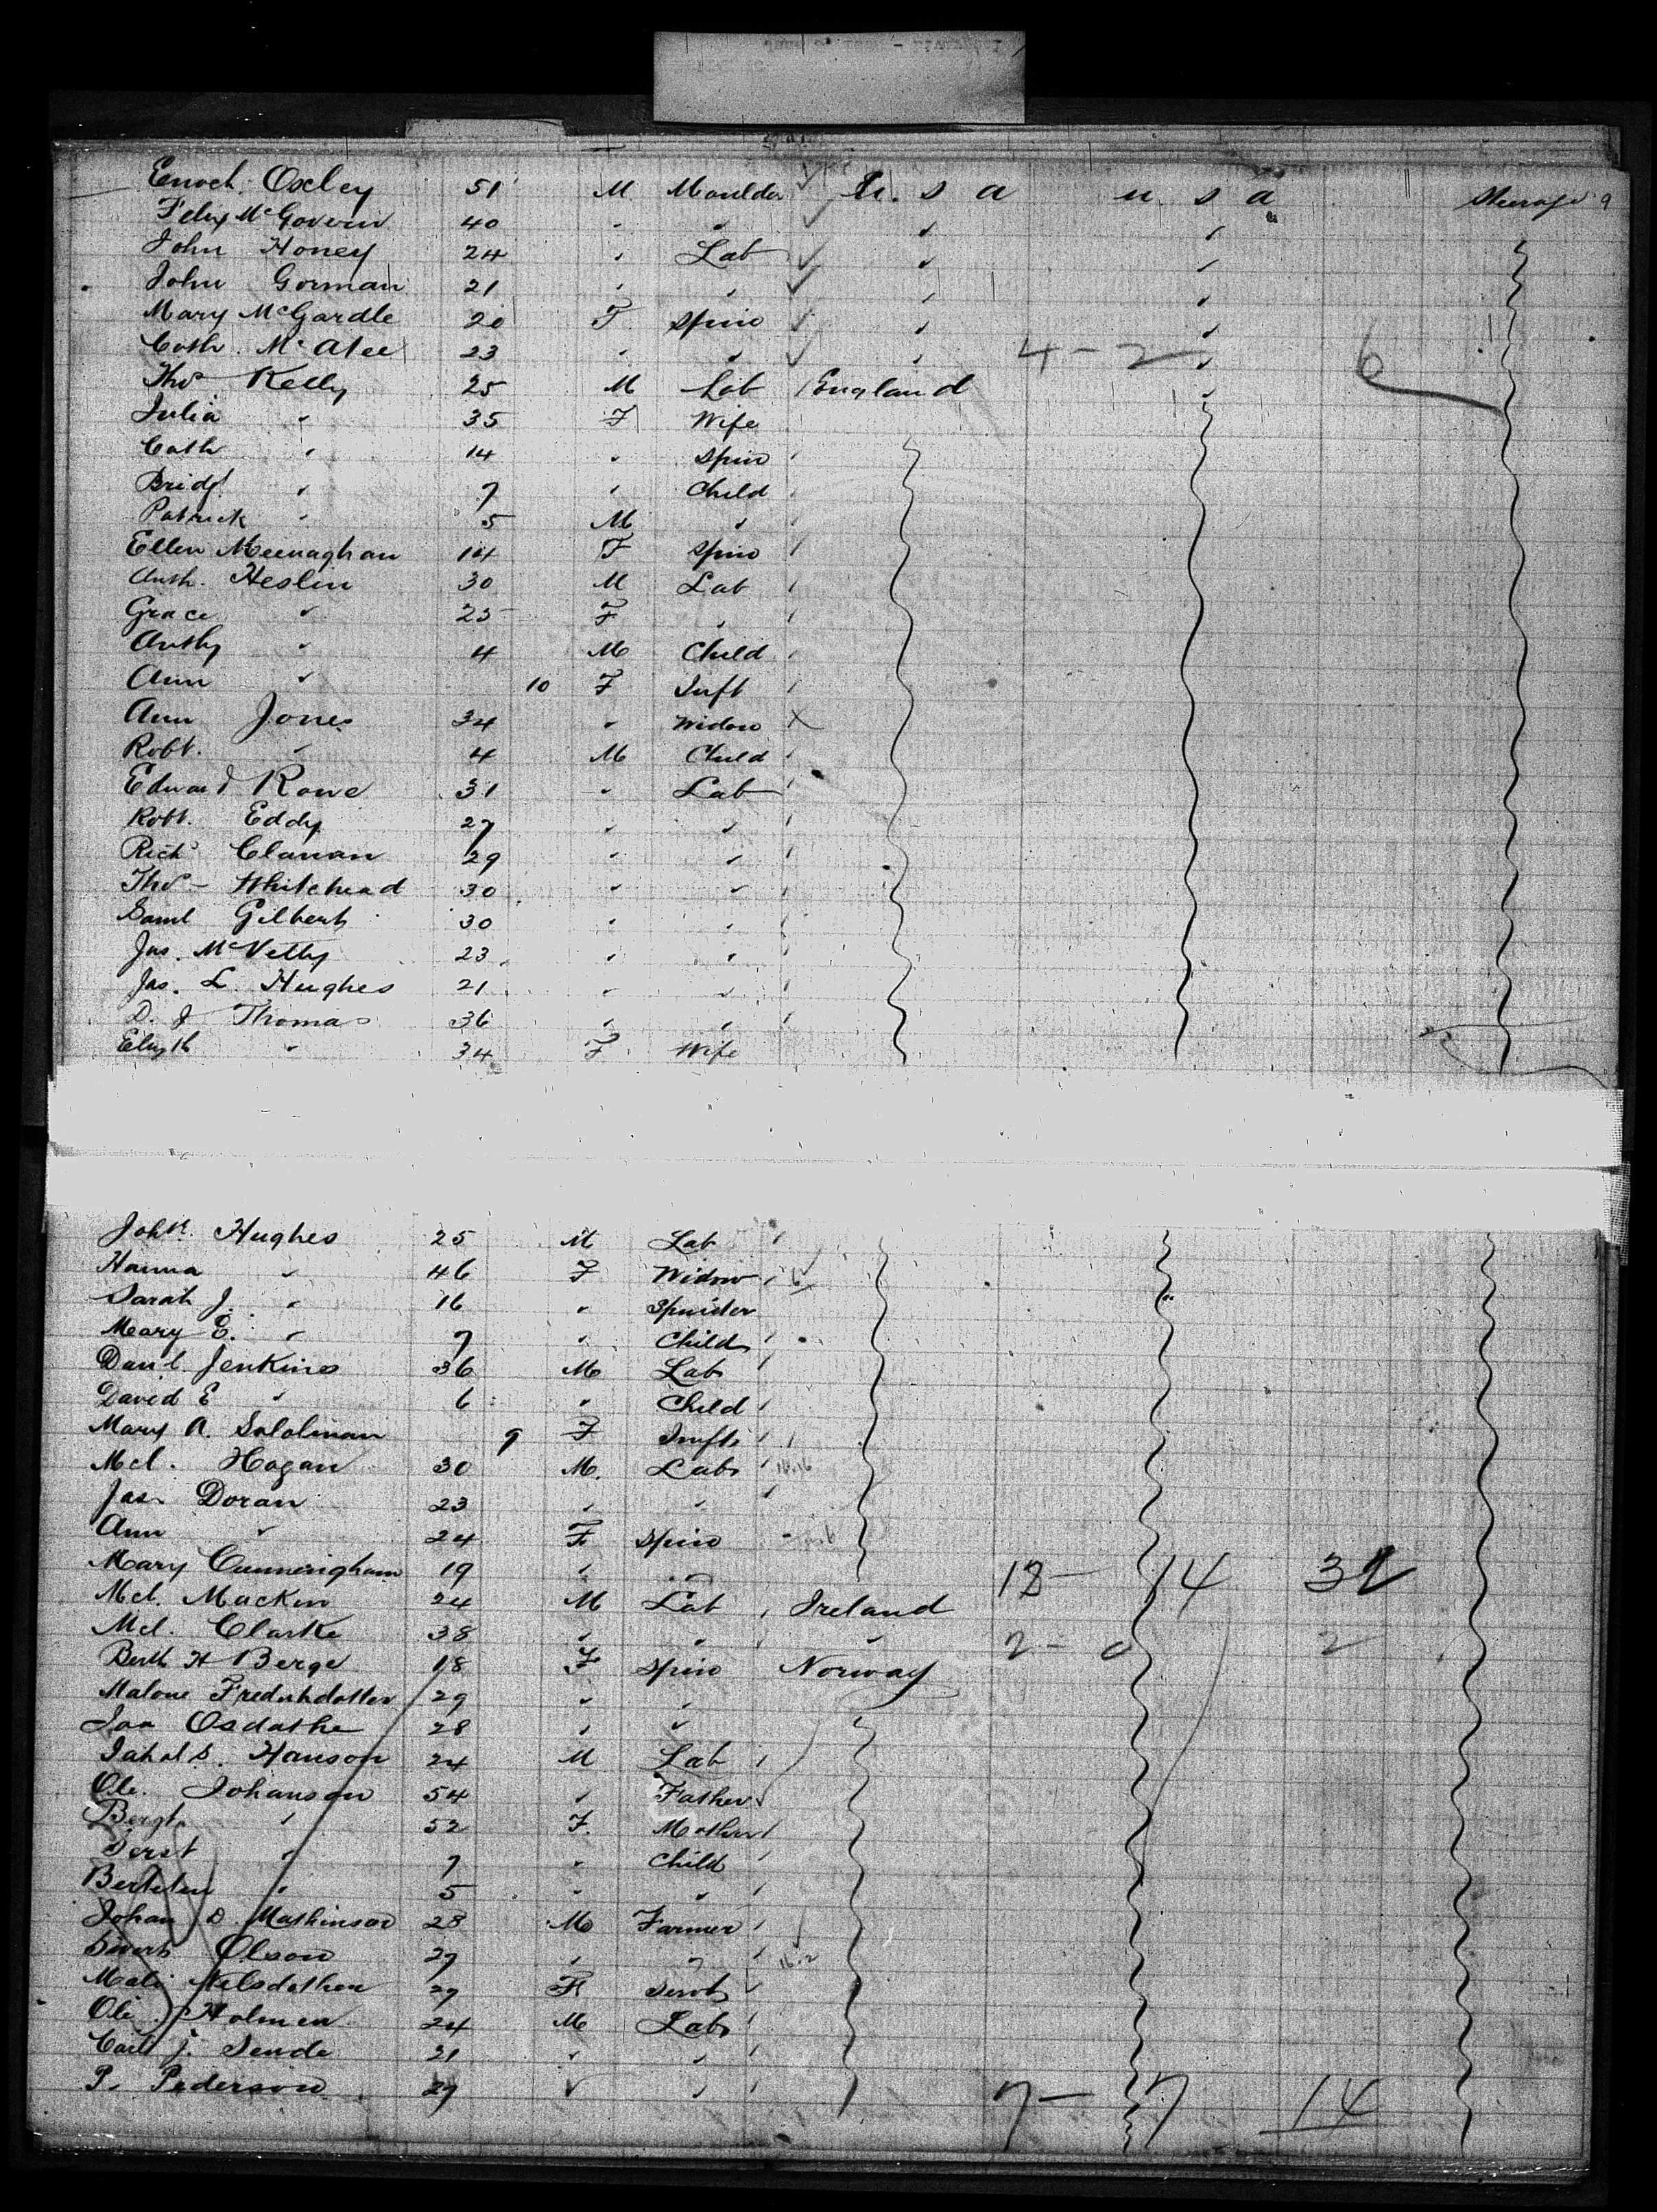 Enoch Oxley 51 M Moulder U. S. A U. S. A Steerage 9
Felix McGovern 40 " "
John Honey 24 " Lab
John Gorman 21 " "
Mary McGardle 20 F Spin
Cath. McAtee 23 " " 4 - 2 6
Thos Kelly 25 M Lab England
Julia " 35 F Wife
Cath " 14 " Spin
Bridgt " 7 " Child
Patrick " 5 M "
Ellen Meenaghan 14 F Spin
Anth. Heslin 30 M Lab
Grace " 25 F "
Anthy " 4 M Child
Ann " 10 F Inft
Ann Jones 34 " Widow X
Robt. " 4 M Child
Edward Rowe 31 " Lab
Robt. Eddy 27 " "
Richd Clanan 29 " "
Thos - Whitehead 30 " "
Saml Gilbert 30 " "
Jas. McVetty 23 " "
Jas. L. Hughes 21 " "
D. J Thomas 36 " "
Elizth " 34 F Wife
John Hughes 25 M Lab
Hanna " 46 F Widow
Sarah J. " 16 " Spinster
Mary E. " 7 " Child
Danl. Jenkins 36 M Lab
David E " 6 " Child
Mary A. Sololiman 9 F Inft
Mcl. Hogan 30 M. Lab
Jas. Doran 23 " "
Ann " 24 F Spin
Mary Cunningham 19 " " 18 - 14 32
Mcl. Mackin 24 M Lab Ireland
Mcl. Clarke 38 " " " 2 - 0 2
Berth H Berge 18 F Spin Norway
Malone Fredrikdotter 29 " "
Osdathe 28 " "
Hanson 24 M Lab
Ole. Johanson 54 " Father
Bergt. " 52 F. Mother
" 7 " Child
" 5 " "
Johan D. Mathinson 28 M Farmer
Sivert Olson 27 " " 16.2
Mali Nelsdather 29 F Servt
Ole Holmen 24 M Lab
Carl J. Sende 21 " "
P. Pederson 29 " " 7 - 7 14